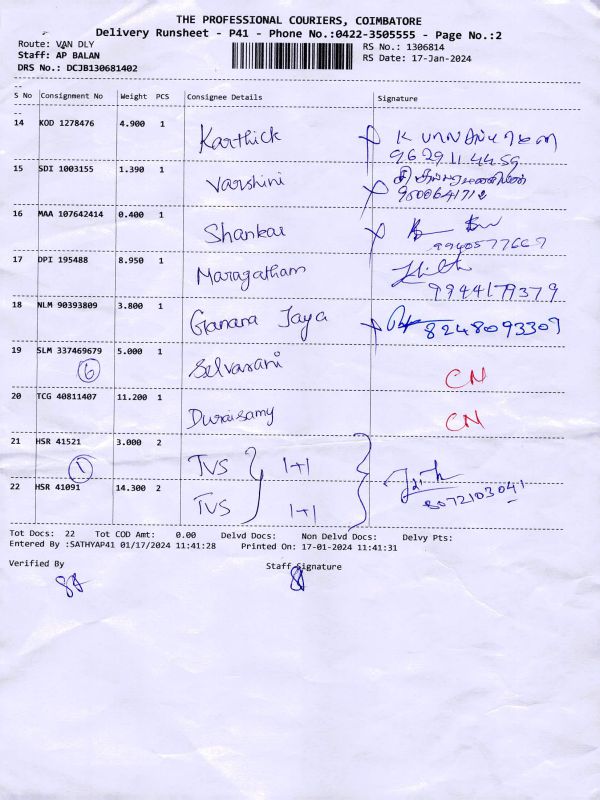 THE PROFESSIONAL COURIERS, COIMBATORE
Delivery Runsheet - P41 - Phone No.:0422-3505555 - Page No.:2
Route: VAN DLY
RS No.: 1306814
Staff: AP BALAN
RS Date: 17-Jan-2024
DRS No.: DCJB130681402
S No Consignment No Weight PCS Consignee Details Signature
14 KOD 1278476 4.900 1 Karthick
9629114459
15 SDI 1003155 1.390 1 Varshini
9500641712
16 MAA 107642414 0.400 1 Shankar
9940577667
17 DPI 195488 8.950 1 Maragatham
9944179379
18 NLM 90393809 3.800 1 Gnana Jaya 8248093309
19 SLM 337469679 5.000 1 Selvarani CN
6
20 TCG 40811407 11.200 1 Duraisamy CN
21 HSR 41521 3.000 2 TVS 1+1
1
22 HSR 41091 14.300 2 TVS 1+1 8072103041
Tot Docs: 22 Tot COD Amt: 0.00 Delvd Docs: Non Delvd Docs: Delvy Pts:
Entered By :SATHYAP41 01/17/2024 11:41:28 Printed On: 17-01-2024 11:41:31
Verified By Staff Signature